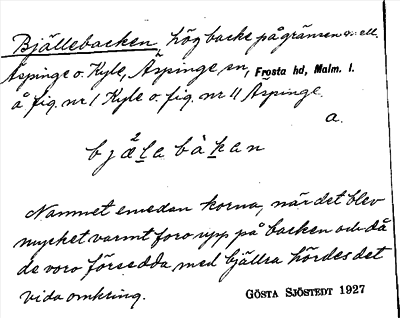 Bjällebacken, hög backe på gränsen v. ell.
Äspinge o. Kyle, Äspinge sn, Frosta hd, Malm. l.
å fig. nr 1 Kyle o. fig. nr 11 Äspinge.
a.
bjælabàkan
Namnet emedan korna, när det blev
mycket varmt foro upp på backen och då
de voro försedda med bjällra hördes det
vida omkring.
GÖSTA SJÖSTEDT 1927